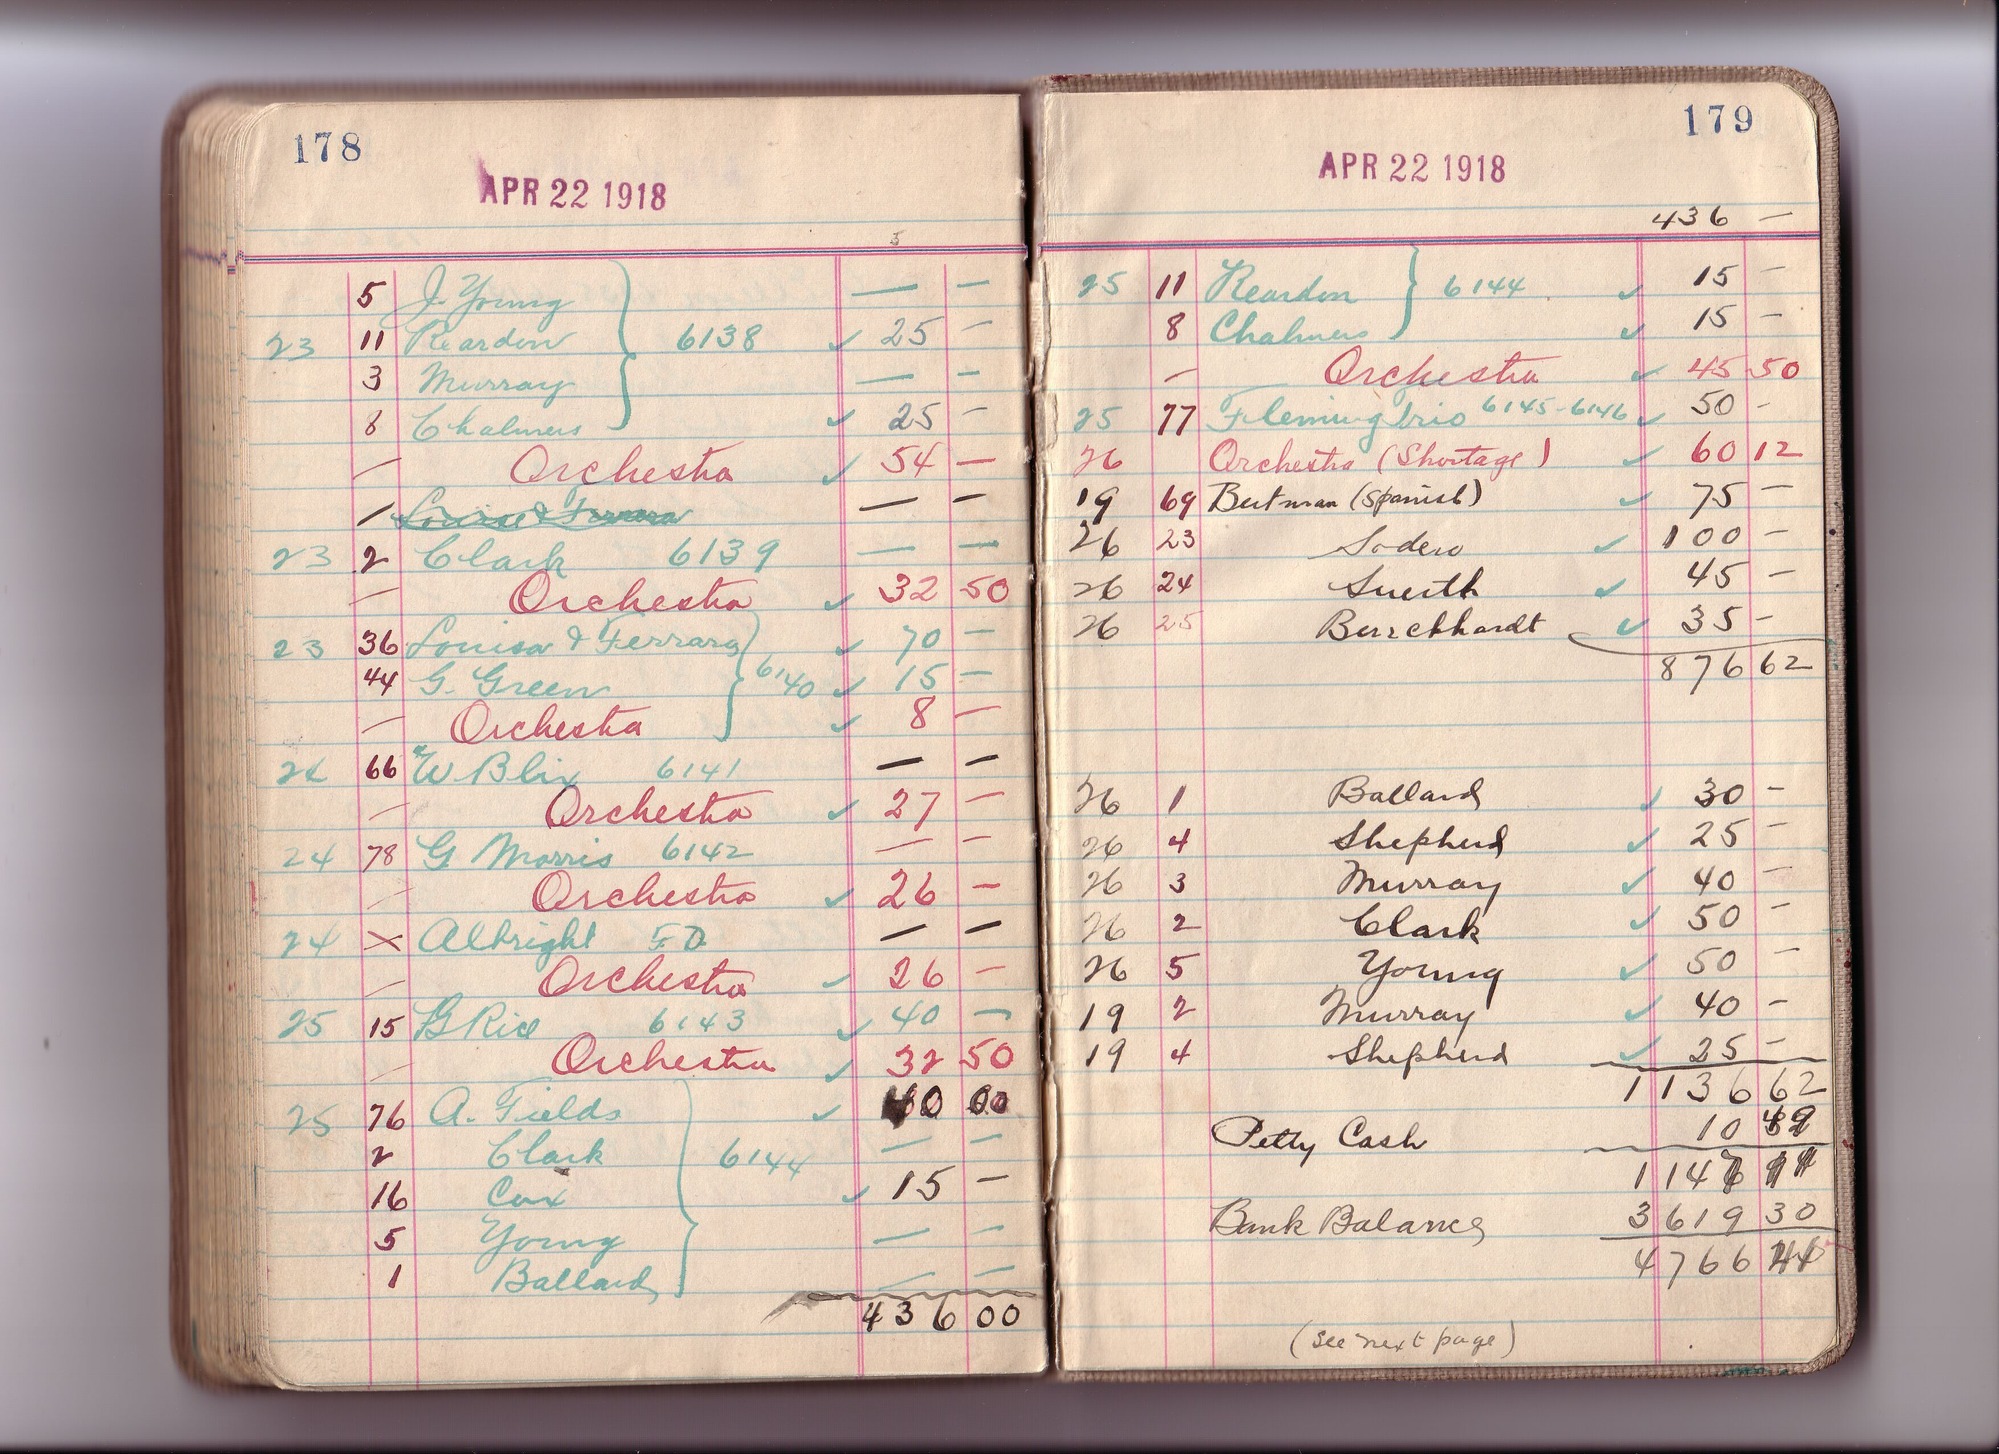 178
APR 22 1918
5 J. Young — —
23 11 Reardon 6138 ✓ 25 —
3 Murray — —
8 Chalmers ✓ 25 —
— Orchestra ✓ 54 —
— Louisa & Ferrara — —
23 2 Clark 6139 — —
— Orchestra ✓ 32 50
23 36 Louisa & Ferrara ✓ 70 —
44 G. Green 6140 ✓ 15 —
— Orchestra ✓ 8 —
24 66 W Blix 6141 — —
— Orchestra ✓ 27 —
24 78 G Morris 6142 — —
— Orchestra ✓ 26 —
24 X Albright F.D. — —
— Orchestra ✓ 26 —
25 15 G Rice 6143 ✓ 40 —
— Orchestra ✓ 32 50
25 76 A. Fields ✓ 40 00
2 Clark 6144 — —
16 Cox ✓ 15 —
5 Young — —
1 Ballard — —
436 00
179
APR 22 1918
436 —
25 11 Reardon 6144 ✓ 15 —
8 Chalmers ✓ 15 —
— Orchestra ✓ 45 50
25 77 Fleming Trio 6145-6146 ✓ 50 -
26 Orchestra (Shortage) ✓ 60 12
19 69 (Spanish) ✓ 75 —
26 23 Sodero ✓ 100 —
26 24 ✓ 45 —
26 25 Burckhardt ✓ 35 -
876 62
26 1 Ballard ✓ 30 -
26 4 Shepherd ✓ 25 —
26 3 Murray ✓ 40 —
26 2 Clark ✓ 50 —
26 5 Young ✓ 50 —
19 2 Murray ✓ 40 -
19 4 Shepherd ✓ 25 -
1136 62
Petty Cash 10
114
Bank Balance 3619 30
4766
(see next page)